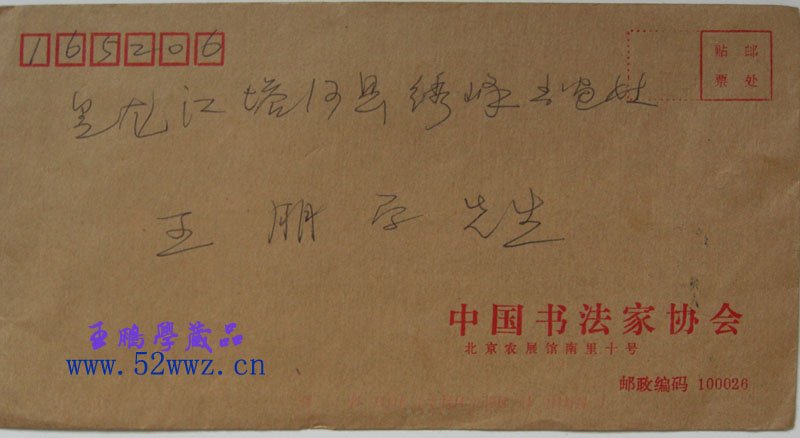 165206
贴 邮
票 处
黑龙江塔河县绣峰
王朋学先生
中国书法家协会
北京农展馆南里十号
邮政编码 100026
王鹏學藏品
www.52wwz.cn